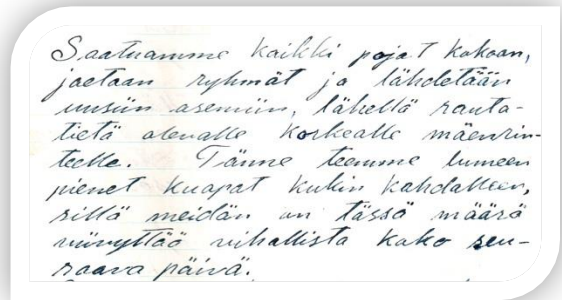 Saatuamme kaikki pojat kokoon,
jaetaan ryhmät ja lähdetään
uusiin asemiin, lähellä rauta-
tietä olevalle korkealle mäenrin-
teelle. Tänne teemme lumeen
pienet kuopat kukin kohdalleen,
sillä meidän on tässä määrä
viivyttää vihollista koko seu-
raava päivä.